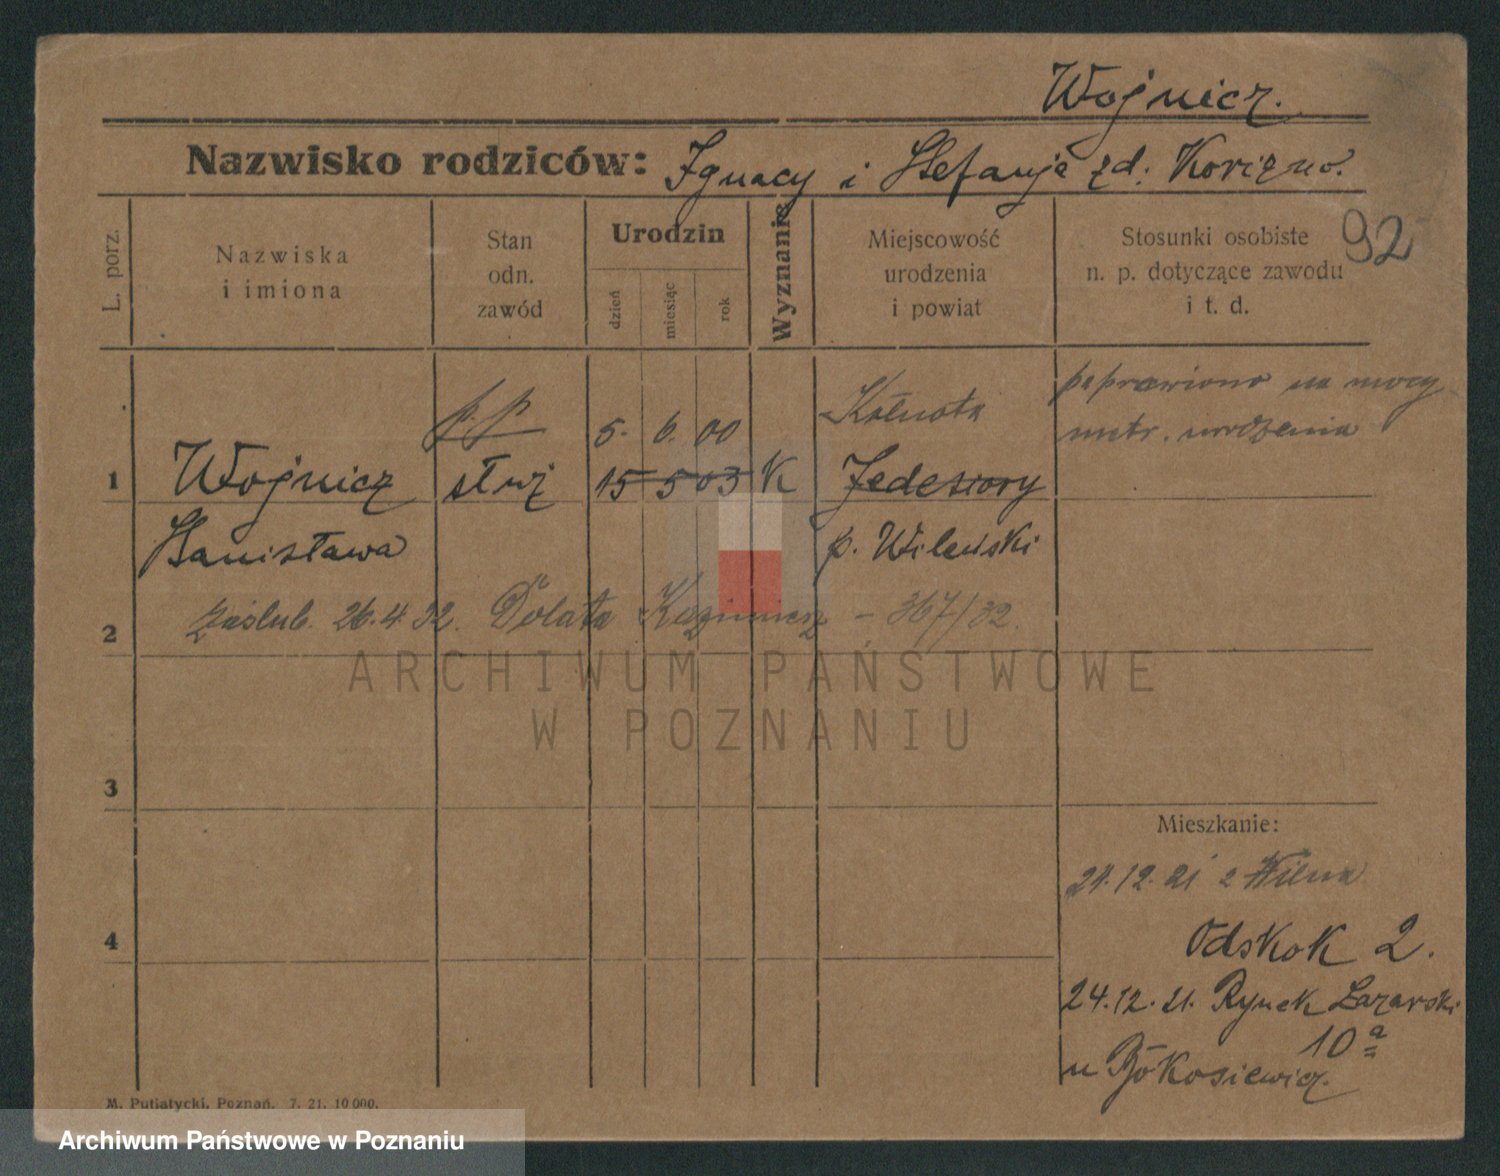 Wojnicz.
Nazwisko rodziców: Ignacy i Stefanja zd. Korizno.
92
L. porz.
Nazwiska
i imiona
Stan
odn.
zawód
Urodzin
dzień
miesiąc
rok
Wyznanie
Miejscowość
urodzenia
i powiat
Stosunki osobiste
n. p. dotyczące zawodu
i t. d.
5. 6. 00
Kołnota
poprawiono na mocy
metr. urodzenia
1
Wojnicz
służ
15 5 03
K
Jedesiory
Stanisława
p. Wileński
2
zaślub. 26.4.32. Dolata Kazimierz – 367/32.
ARCHIWUM PAŃSTWOWE
W POZNANIU
3
Mieszkanie:
21.12.21 z Wilna
4
Odskok 2.
24.12.21. Rynek Łazarski
10a
u
M. Putiatycki, Poznań. 7. 21. 10 000.
Archiwum Państwowe w Poznaniu